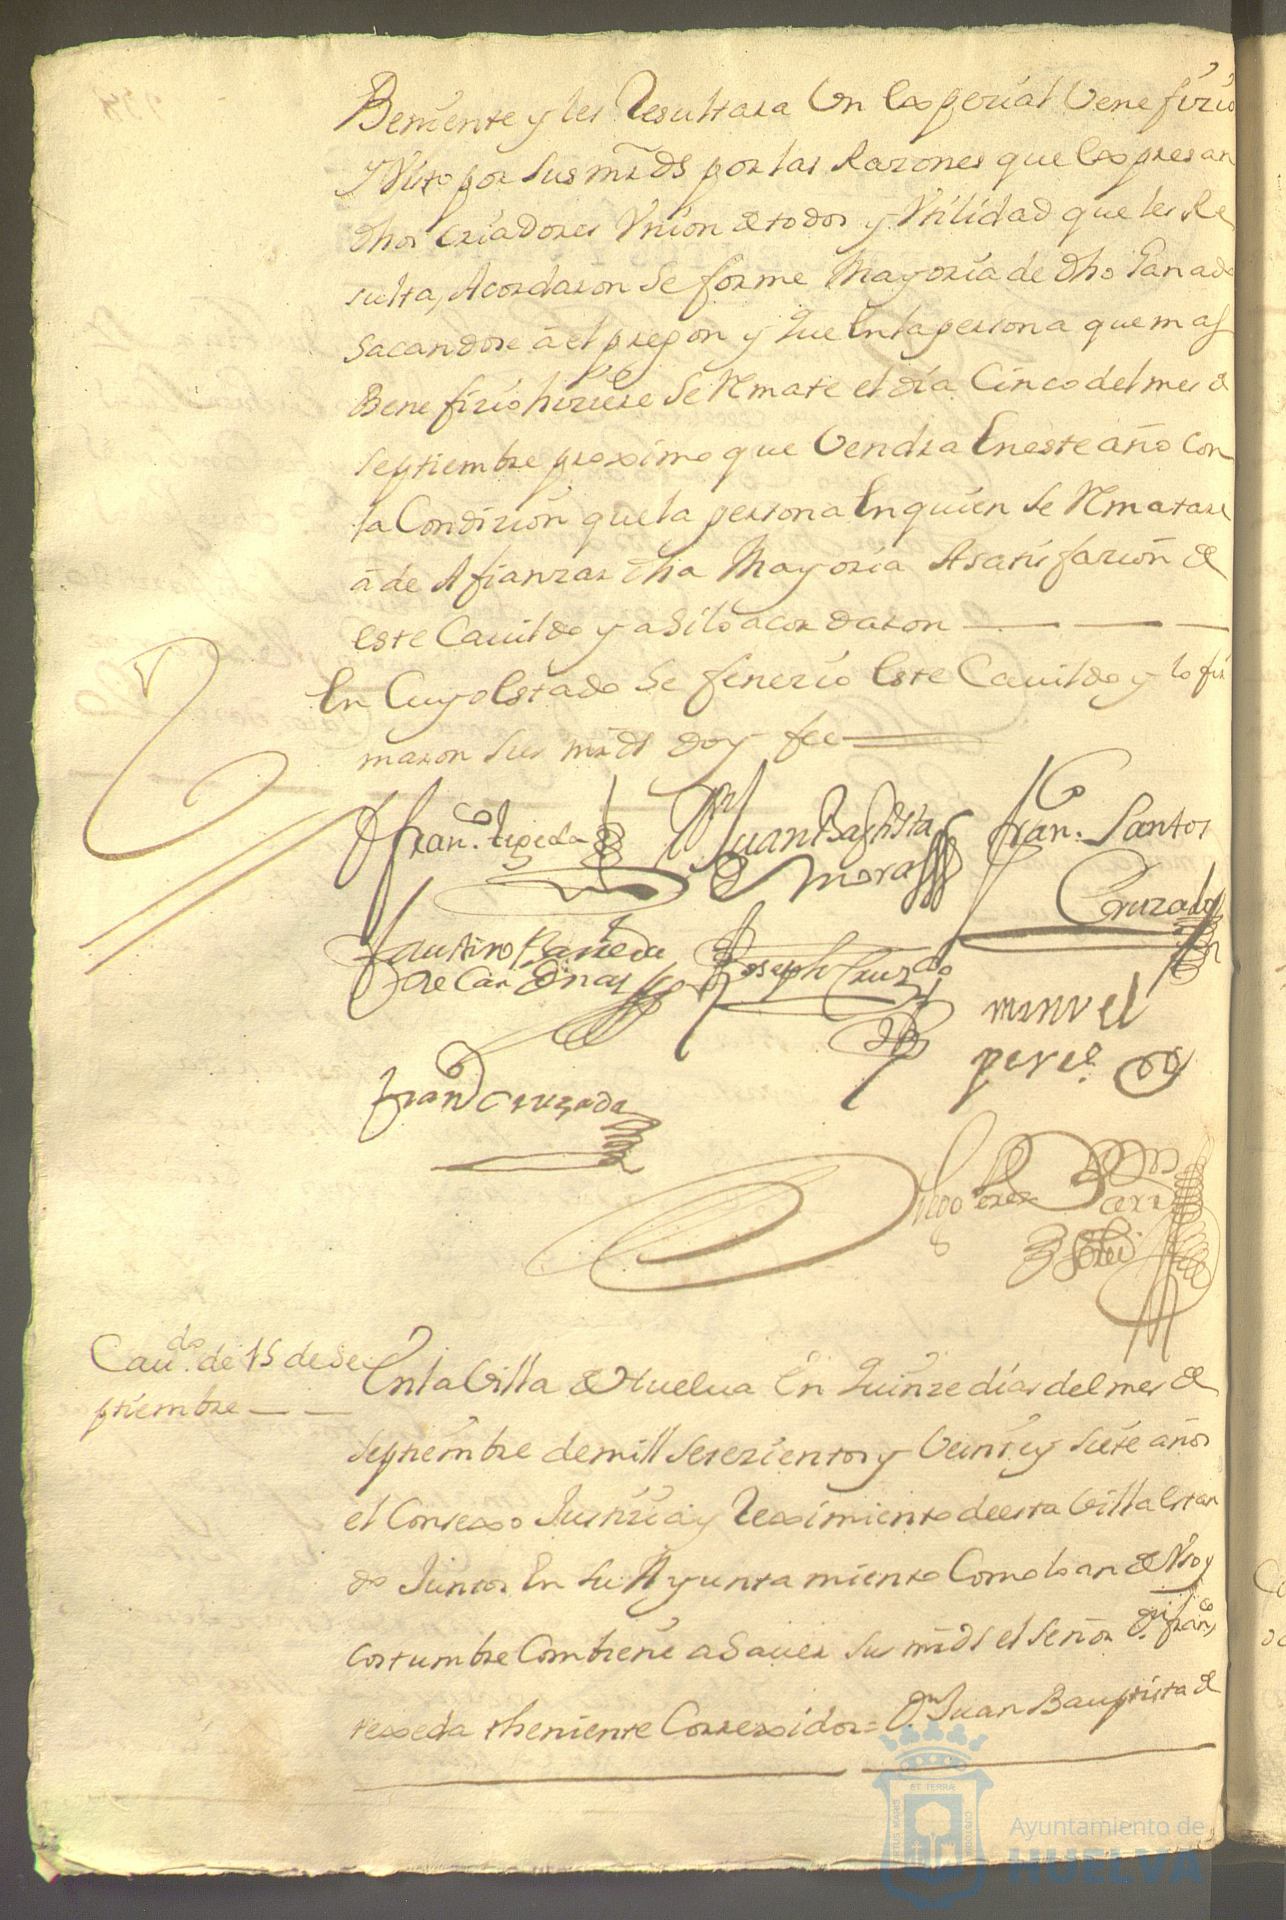 Beniente y les Resultara Un Expecial Veneficio
y Visto por Sus mrds por las Razones que Expresan
dhos Criadores Vnion de todos y Vtilidad que les Re
sulta, Acordaron Se forme Mayoria de dho Ganado
Sacandose a el pregon y Que En la persona que mas
Beneficio hiziere Se Remate el dia Cinco del mes de
septiembre proximo que Vendra En este año Con
la Condizion que la persona En quien Se Rematare
a de Afianzar dha Mayoria A satisfazion de
este Cauildo y asi lo acordaron
En Cuyo Estado Se fenezio Este Cauildo y lo fir
maron Sus mrds doy fee
Dn Franco. tejeda
Dn Juan Baptista
de mora
Franco. Santos
Cruzado
Faustino
de Cardenas
Joseph Cruzdo
manuel
perez
Franco Cruzado
Diego Perez
Cauldo. de 15 de Se
ptiembre
En la Villa de Huelua En Quinze dias del mes de
Septiembre de mill Setezientos y Veinte y Siete años
el Consexo Justizia y Reximiento de esta Villa Estan
do Juntos En Su Ayuntamiento Como lo an de Vso y
costumbre Combiene a Sauer Su mrd el Señor Dn. franco
texeda theniente Correxidor = Dn Juan Bauptista de
Ayuntamiento de
HUELVA